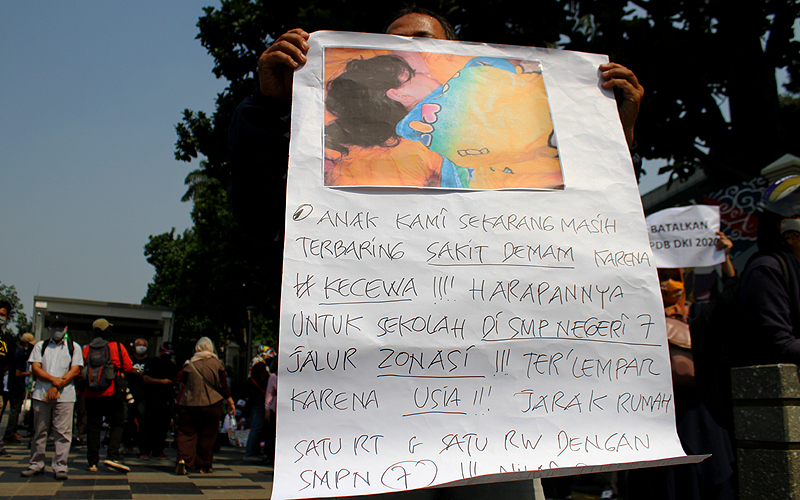 ① ANAK KAMI SEKARANG MASIH
TERBARING SAKIT DEMAM KARENA
# KECEWA !!!! HARAPANNYA
UNTUK SEKOLAH DI SMP NEGERI 7
JALUR ZONASI !!! TER'LEMPAR
KARENA USIA !!! JARAK RUMAH
SATU RT & SATU RW DENGAN
SMPN (7) !!!
BATALKAN
PDB DKI 2020